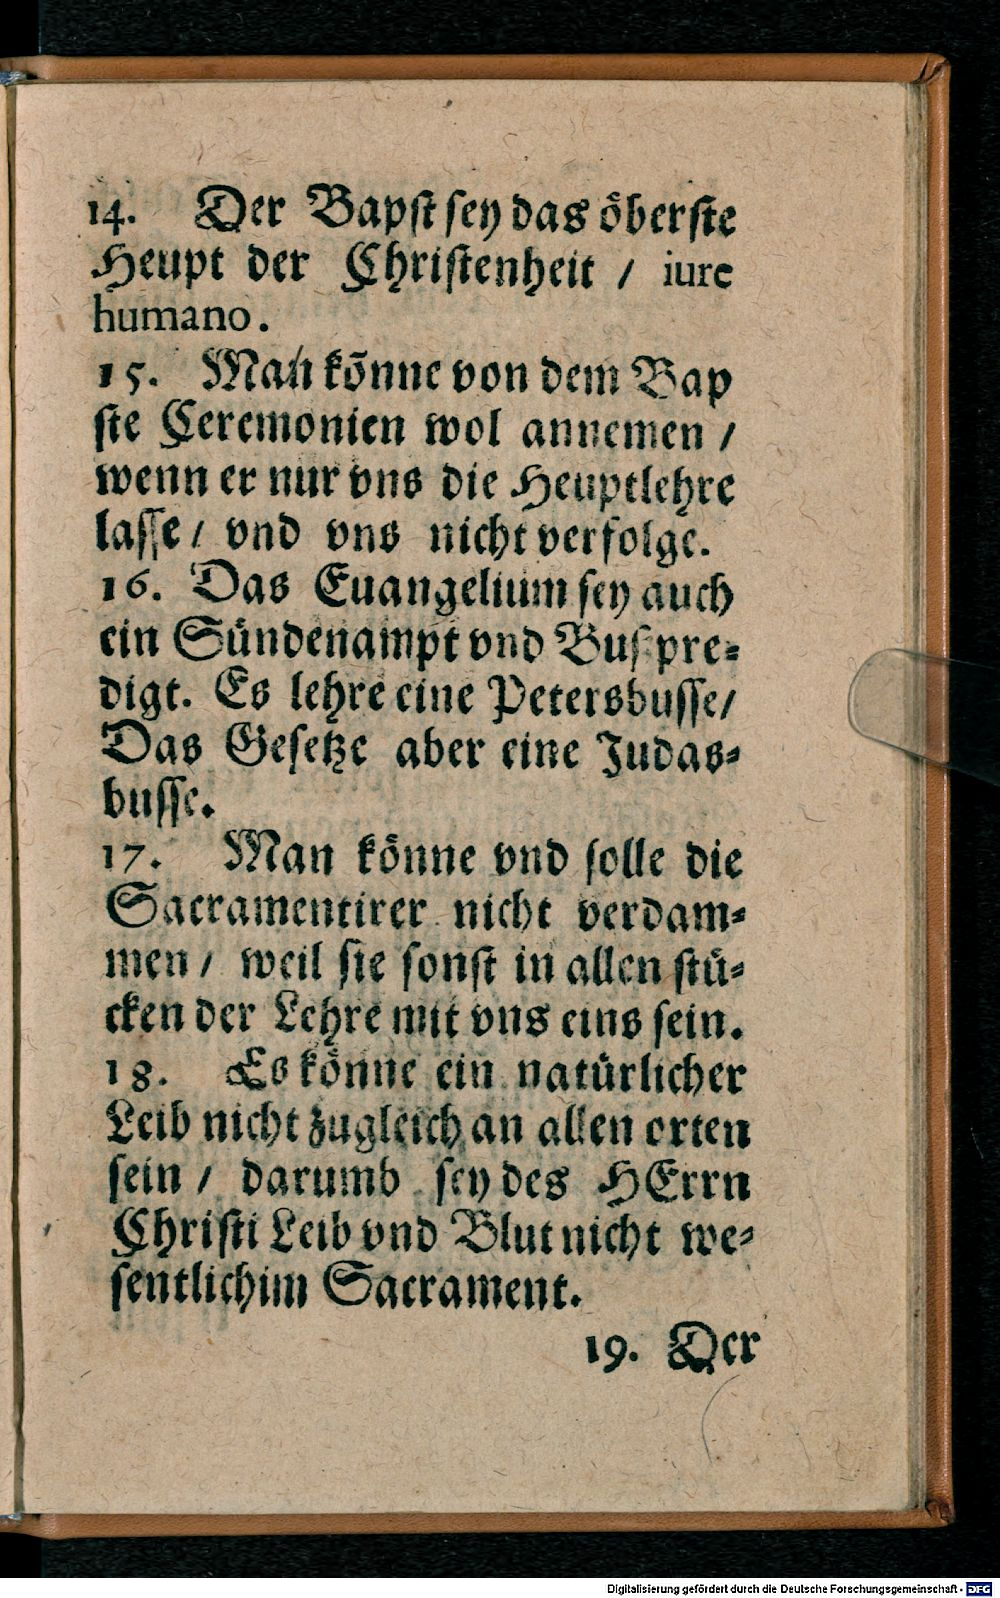 14. Der Bapst sey das öberste
Heupt der Christenheit / iure
humano.
15. Man könne von dem Bap
ste Ceremonien wol annemen /
wenn er nur vns die Heuptlehre
lasse / vnd vns nicht verfolge.
16. Das Euangelium sey auch
ein Sündenampt vnd Buspre-
digt. Es lehre eine Petersbusse /
Das Gesetze aber eine Judas-
busse.
17. Man könne vnd solle die
Sacramentirer nicht verdam-
men / weil sie sonst in allen stü-
cken der Lehre mit vns eins sein.
18. Es könne ein natürlicher
Leib nicht zugleich an allen orten
sein / darumb sey des HErrn
Christi Leib vnd Blut nicht we-
sentlich im Sacrament.
19. Der
Digitalisierung gefördert durch die Deutsche Forschungsgemeinschaft - DFG